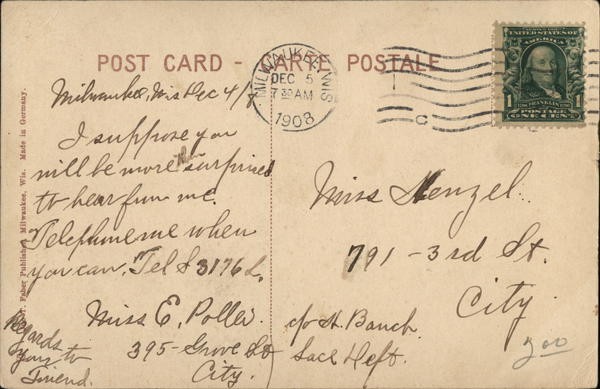 POST CARD - CARTE POSTALE
MILWAUKEE, WIS
DEC 5
7 30 AM
1908
UNITED STATES OF
AMERICA
1
FRANKLIN
1
POSTAGE
ONE CENT
Milwaukee, Wis Dec 4/
I suppose you
will be more than surprised
to hear from me.
Telephone me when
you can. Tel S 3176 L.
Miss E. Poller.
395 - Grove St
City.
Regards
your to
Friend.
Miss Henzel.
791 - 3rd St.
City.
c/o H. Bauch
Lace Deft.
200
Faber Publisher, Milwaukee, Wis. Made in Germany.